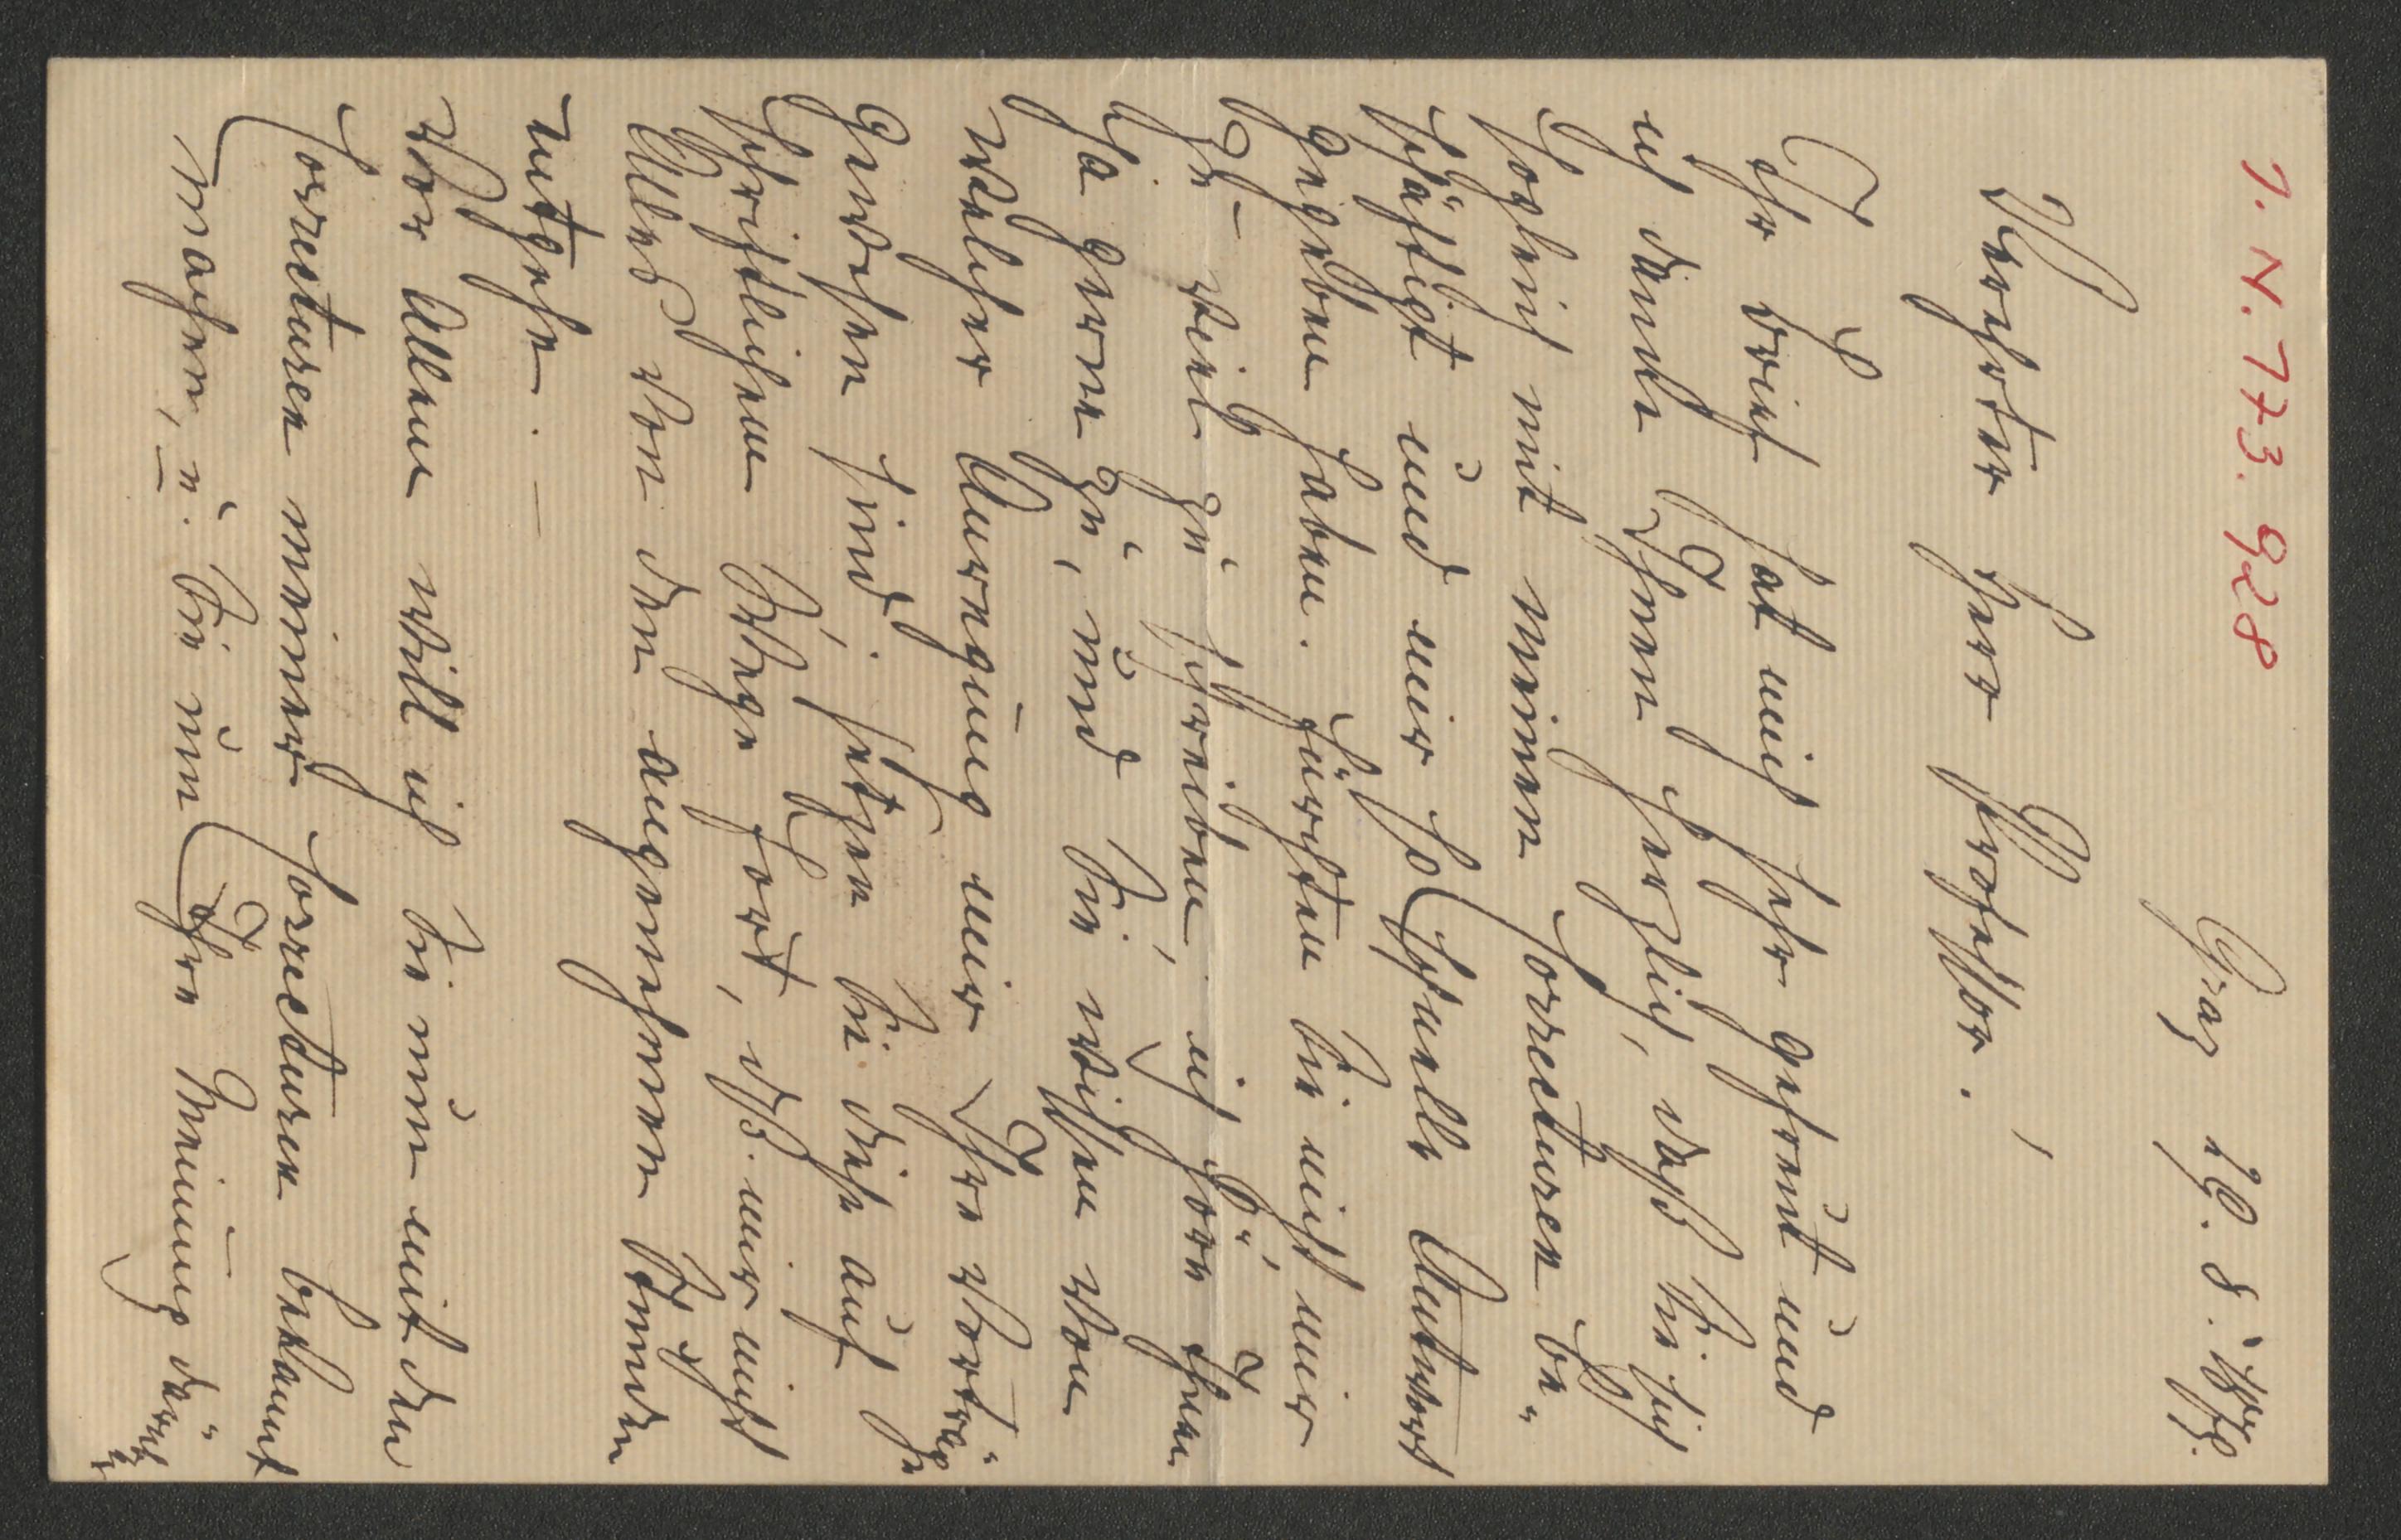 I. N. 173.928
Graz 19. 8.
Verehrter Herr Professor.
Ihr Brief hat mich sehr gefreut und
ich danke Ihnen herzlich, daß Sie sich
sogleich mit meinen Correcturen be-
schäftigt und mir so schnelle Antwort
gegeben haben. Fürchten Sie nicht mir
zu viel zu schreiben, ich höre Ihnen
so gerne zu, und Sie wissen von
welcher Anregung mir Ihre Vorträge
gewesen sind. Setzen Sie diese auf
schriftlichem Wege fort, dß. mir nicht
Alles von den angenehmen Stunden
entgehe. —
Vor Allem will ich Sie nun mit den
Correcturen meiner Correcturen bekannt
machen, u. Sie um Ihre Meinung darüb